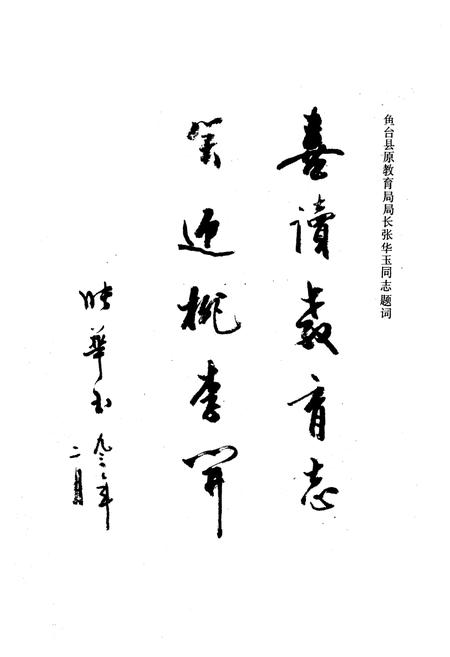 鱼台县原教育局局长张华玉同志题词
喜讀教育志
笑迎桃李開
張華玉
九三年
二月